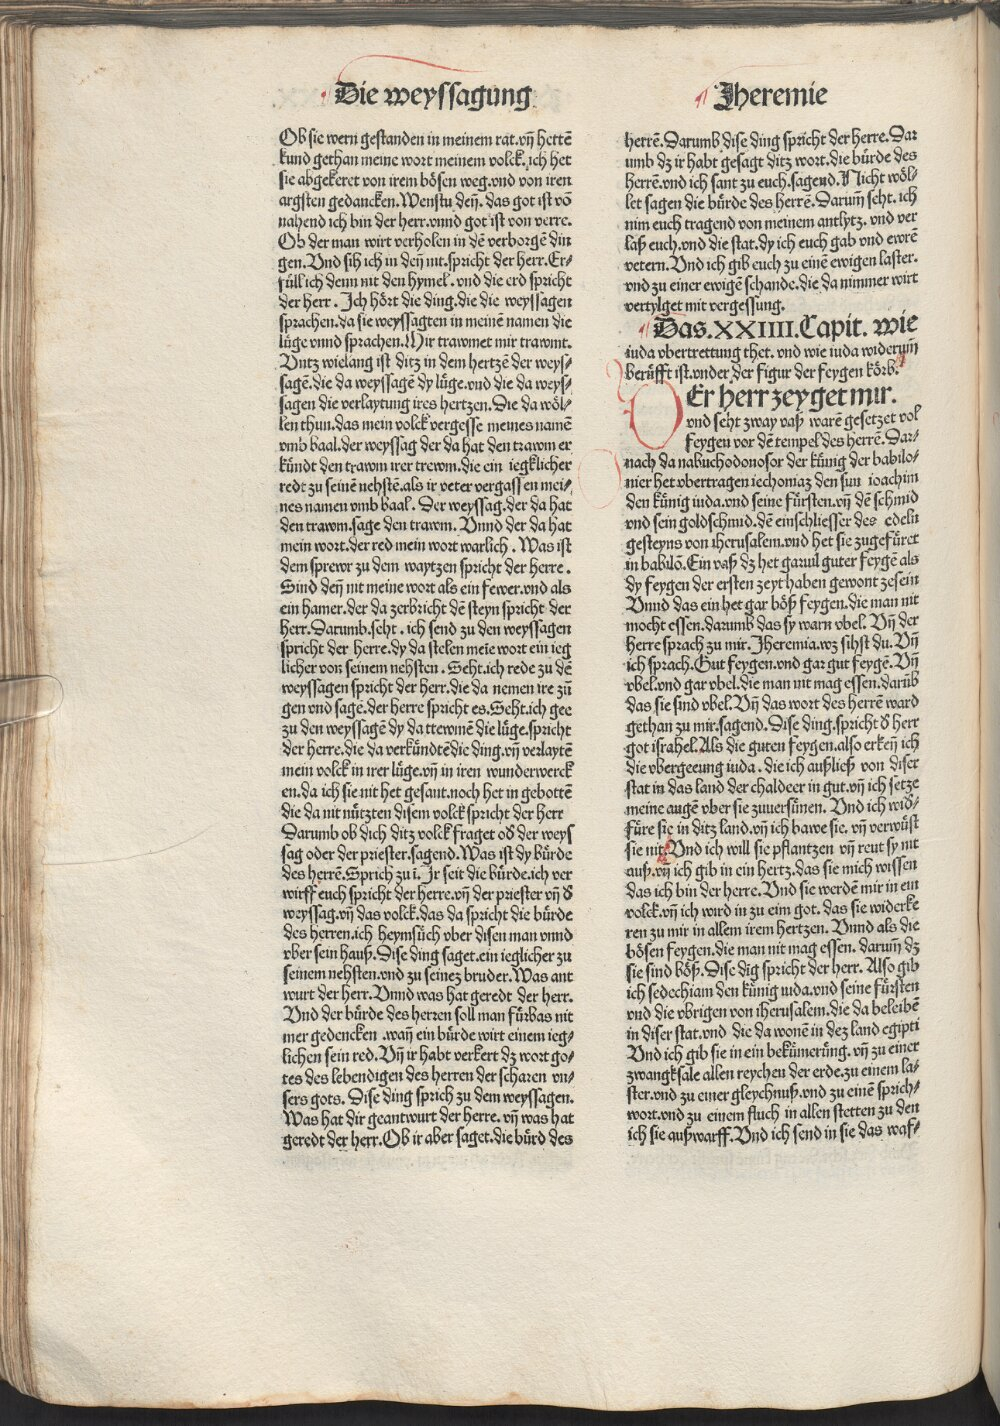 Die weyssagung
Jheremie
Ob sie wern gestanden in meinem rat.vñ hettē
kund gethan meine wort meinem volck.ich het
sie abgekeret von irem bösen weg.vnd von iren
argsten gedancken.Wenstu deñ.das got ist vō
nahend ich bin der herr.vnnd got ist von verre.
Ob der man wirt verholen in dē verborgē din
gen.Vnd sih ich in deñ nit.spricht der herr.Er-
füll ich denn nit den hymel.vnd die erd spricht
der herr. Ich hört die ding.die die weyssagen
sprachen.da sie weyssagten in meinē namen die
lüge vnnd sprachen.Mir trawmet mir trawmt.
Vntz wielang ist ditz in dem hertzē der weys-
sagē.die da weyssagē dy lüge.vnd die da weys-
sagen die verlaytung ires hertzen.Die da wöl-
len thun.das mein volck vergesse meines namē
vmb baal.der weyssag der da hat den trawm er
kündt den trawm irer trewm.die ein iegklicher
redt zu seinē nehstē.als ir veter vergassen mei-
nes namen vmb baal. Der weyssag.der da hat
den trawm.sage den trawm. Vnnd der da hat
mein wort.der red mein wort warlich. Was ist
dem sprewr zu dem waytzen spricht der herre.
Sind deñ nit meine wort als ein fewer.vnd als
ein hamer.der da zerbricht dē steyn spricht der
herr.Darumb.seht.ich send zu den weyssagen
spricht der herre.dy da stelen meie wort ein ieg
licher von seinem nehsten. Seht.ich rede zu dē
weyssagen spricht der herr.die da nemen ire zū
gen vnd sagē.der herre spricht es.Seht.ich gee
zu den weyssagē dy da trewmē die lüge.spricht
der herre.die da verkündtē die ding.vñ verlaytē
mein volck in irer lüge.vñ in iren wunderwerck
en.da ich sie nit het gesant.noch het in gebottē
die da nit nützten disem volck spricht der herr
Darumb ob dich ditz volck fraget od̄ der weys
sag oder der priester.sagend.Was ist dy bürde
des herrē.Sprich zu ī.Ir seit die bürde.ich ver
wirff euch spricht der herre.vñ der priester vñ d̄
weyssag.vñ das volck.das da spricht die bürde
des herren.ich heymsüch vber disen man vnnd
vber sein hauß.Dise ding saget.ein ieglicher zu
seinem nehsten.vnd zu seinez bruder.Was ant
wurt der herr.Vnnd was hat geredt der herr.
Vnd der bürde des herren soll man fürbas nit
mer gedencken.wañ ein bürde wirt einem ieg-
lichen sein red.Vñ ir habt verkert dz wort go-
tes des lebendigen des herren der scharen vn-
sers gots. Dise ding sprich zu dem weyssagen.
Was hat dir geantwurt der herre.vñ was hat
geredt der herr.Ob ir aber saget.die bürd des
herrē.Darumb dise ding spricht der herre.Dar
umb dz ir habt gesagt ditz wort.die bürde des
herrē.vnd ich sant zu euch.sagend.Nicht wöl-
let sagen die bürde des herrē.Darum̄ seht.ich
nim euch tragend von meinem antlytz.vnd ver
laß euch.vnd die stat.dy ich euch gab vnd ewrē
vetern.Vnd ich gib euch zu einē ewigen laster.
vnd zu einer ewigē schande.die da nimmer wirt
vertylget mit vergessung.
Das.XXIIII.Capit. wie
iuda vbertrettung thet.vnd wie iuda widerum̄
berüfft ist.vnder der figur der feygen körb.
Er herr zeyget mir.
vnd seht zway vaß warē gesetzet vol
feygen vor dē tempel des herrē.Dar-
nach da nabuchodonosor der künig der babilo-
nier het vbertragen iechoniaz den sun ioachim
den künig iuda.vnd seine fürsten.vñ dē schmid
vnd sein goldschmid.dē einschliesser des edeln
gesteyns von iherusalem.vnd het sie zugefüret
in babilō.Ein vaß dz het garuil guter feygē als
dy feygen der ersten zeyt haben gewont zesein
Vnnd das ein het gar böß feygen.die man nit
mocht essen.darumb das sy warn vbel. Vñ der
herre sprach zu mir.Jheremia.wz sihst du.Vñ
ich sprach.Gut feygen.vnd gar gut feygē.Vñ
vbel.vnd gar vbel.die man nit mag essen.darūb
das sie sind vbel.Vñ das wort des herrē ward
gethan zu mir.sagend.Dise ding.spricht d̄ herr
got israhel.Als die guten feygen.also erkeñ ich
die vbergeeung iuda.die ich außließ von diser
stat in das land der chaldeer in gut.vñ ich setze
meine augē vber sie zuuersünen. Vnd ich wid̄-
füre sie in ditz land.vñ ich bawe sie.vñ verwüst
sie nit.Vnd ich will sie pflantzen vñ reut sy nit
auß.vñ ich gib in ein hertz.das sie mich wissen
das ich bin der herre.Vnd sie werdē mir in ein
volck.vñ ich wird in zu eim got.das sie widerke
ren zu mir in allem irem hertzen. Vnnd als die
bösen feygen.die man nit mag essen. darum̄ dz
sie sind böß.Dise dig spricht der herr. Also gib
ich sedechiam den künig iuda.vnd seine fürsten
vnd die vbrigen von iherusalem.die da beleibē
in diser stat.vnd die da wonē in dez land egipti
Vnd ich gib sie in ein bekümerūng.vñ zu einer
zwangksale allen reychen der erde.zu einem la-
ster.vnd zu einer gleychnuß.vnd zu einē sprich-
wort.vnd zu einem fluch in allen stetten zu den
ich sie außwarff.Vnd ich send in sie das waf-